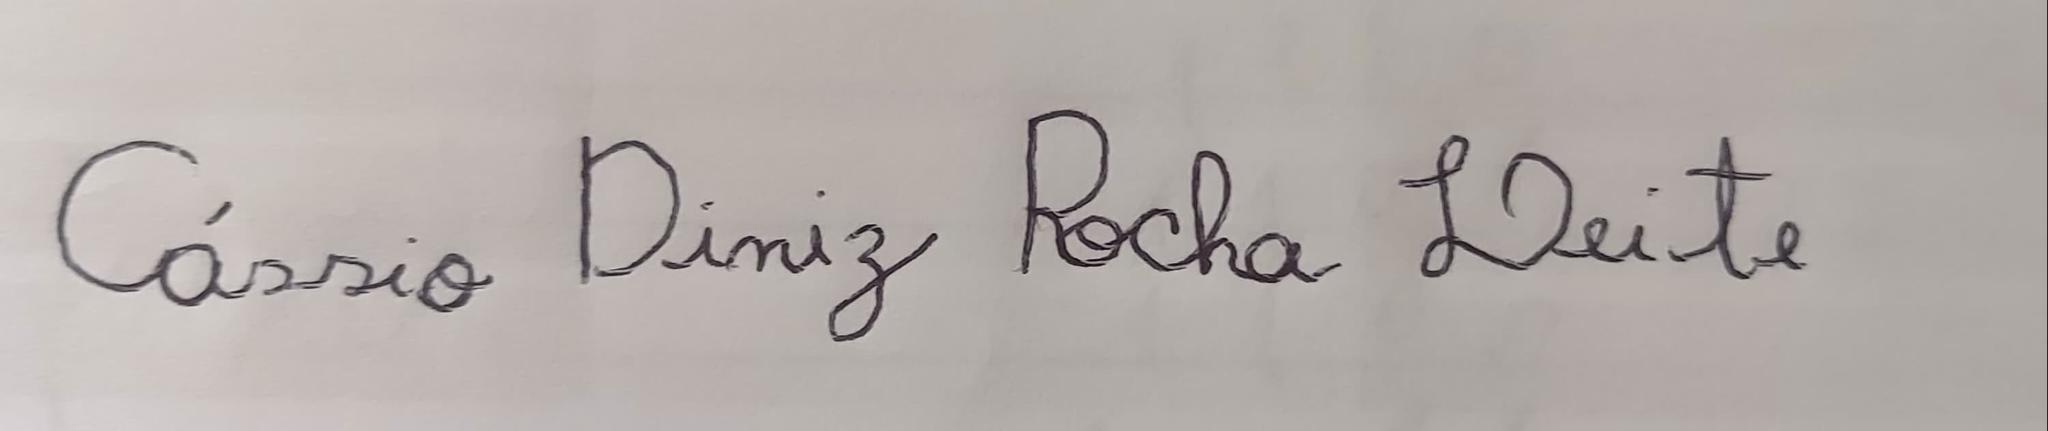 Cássio Diniz Rocha Leite